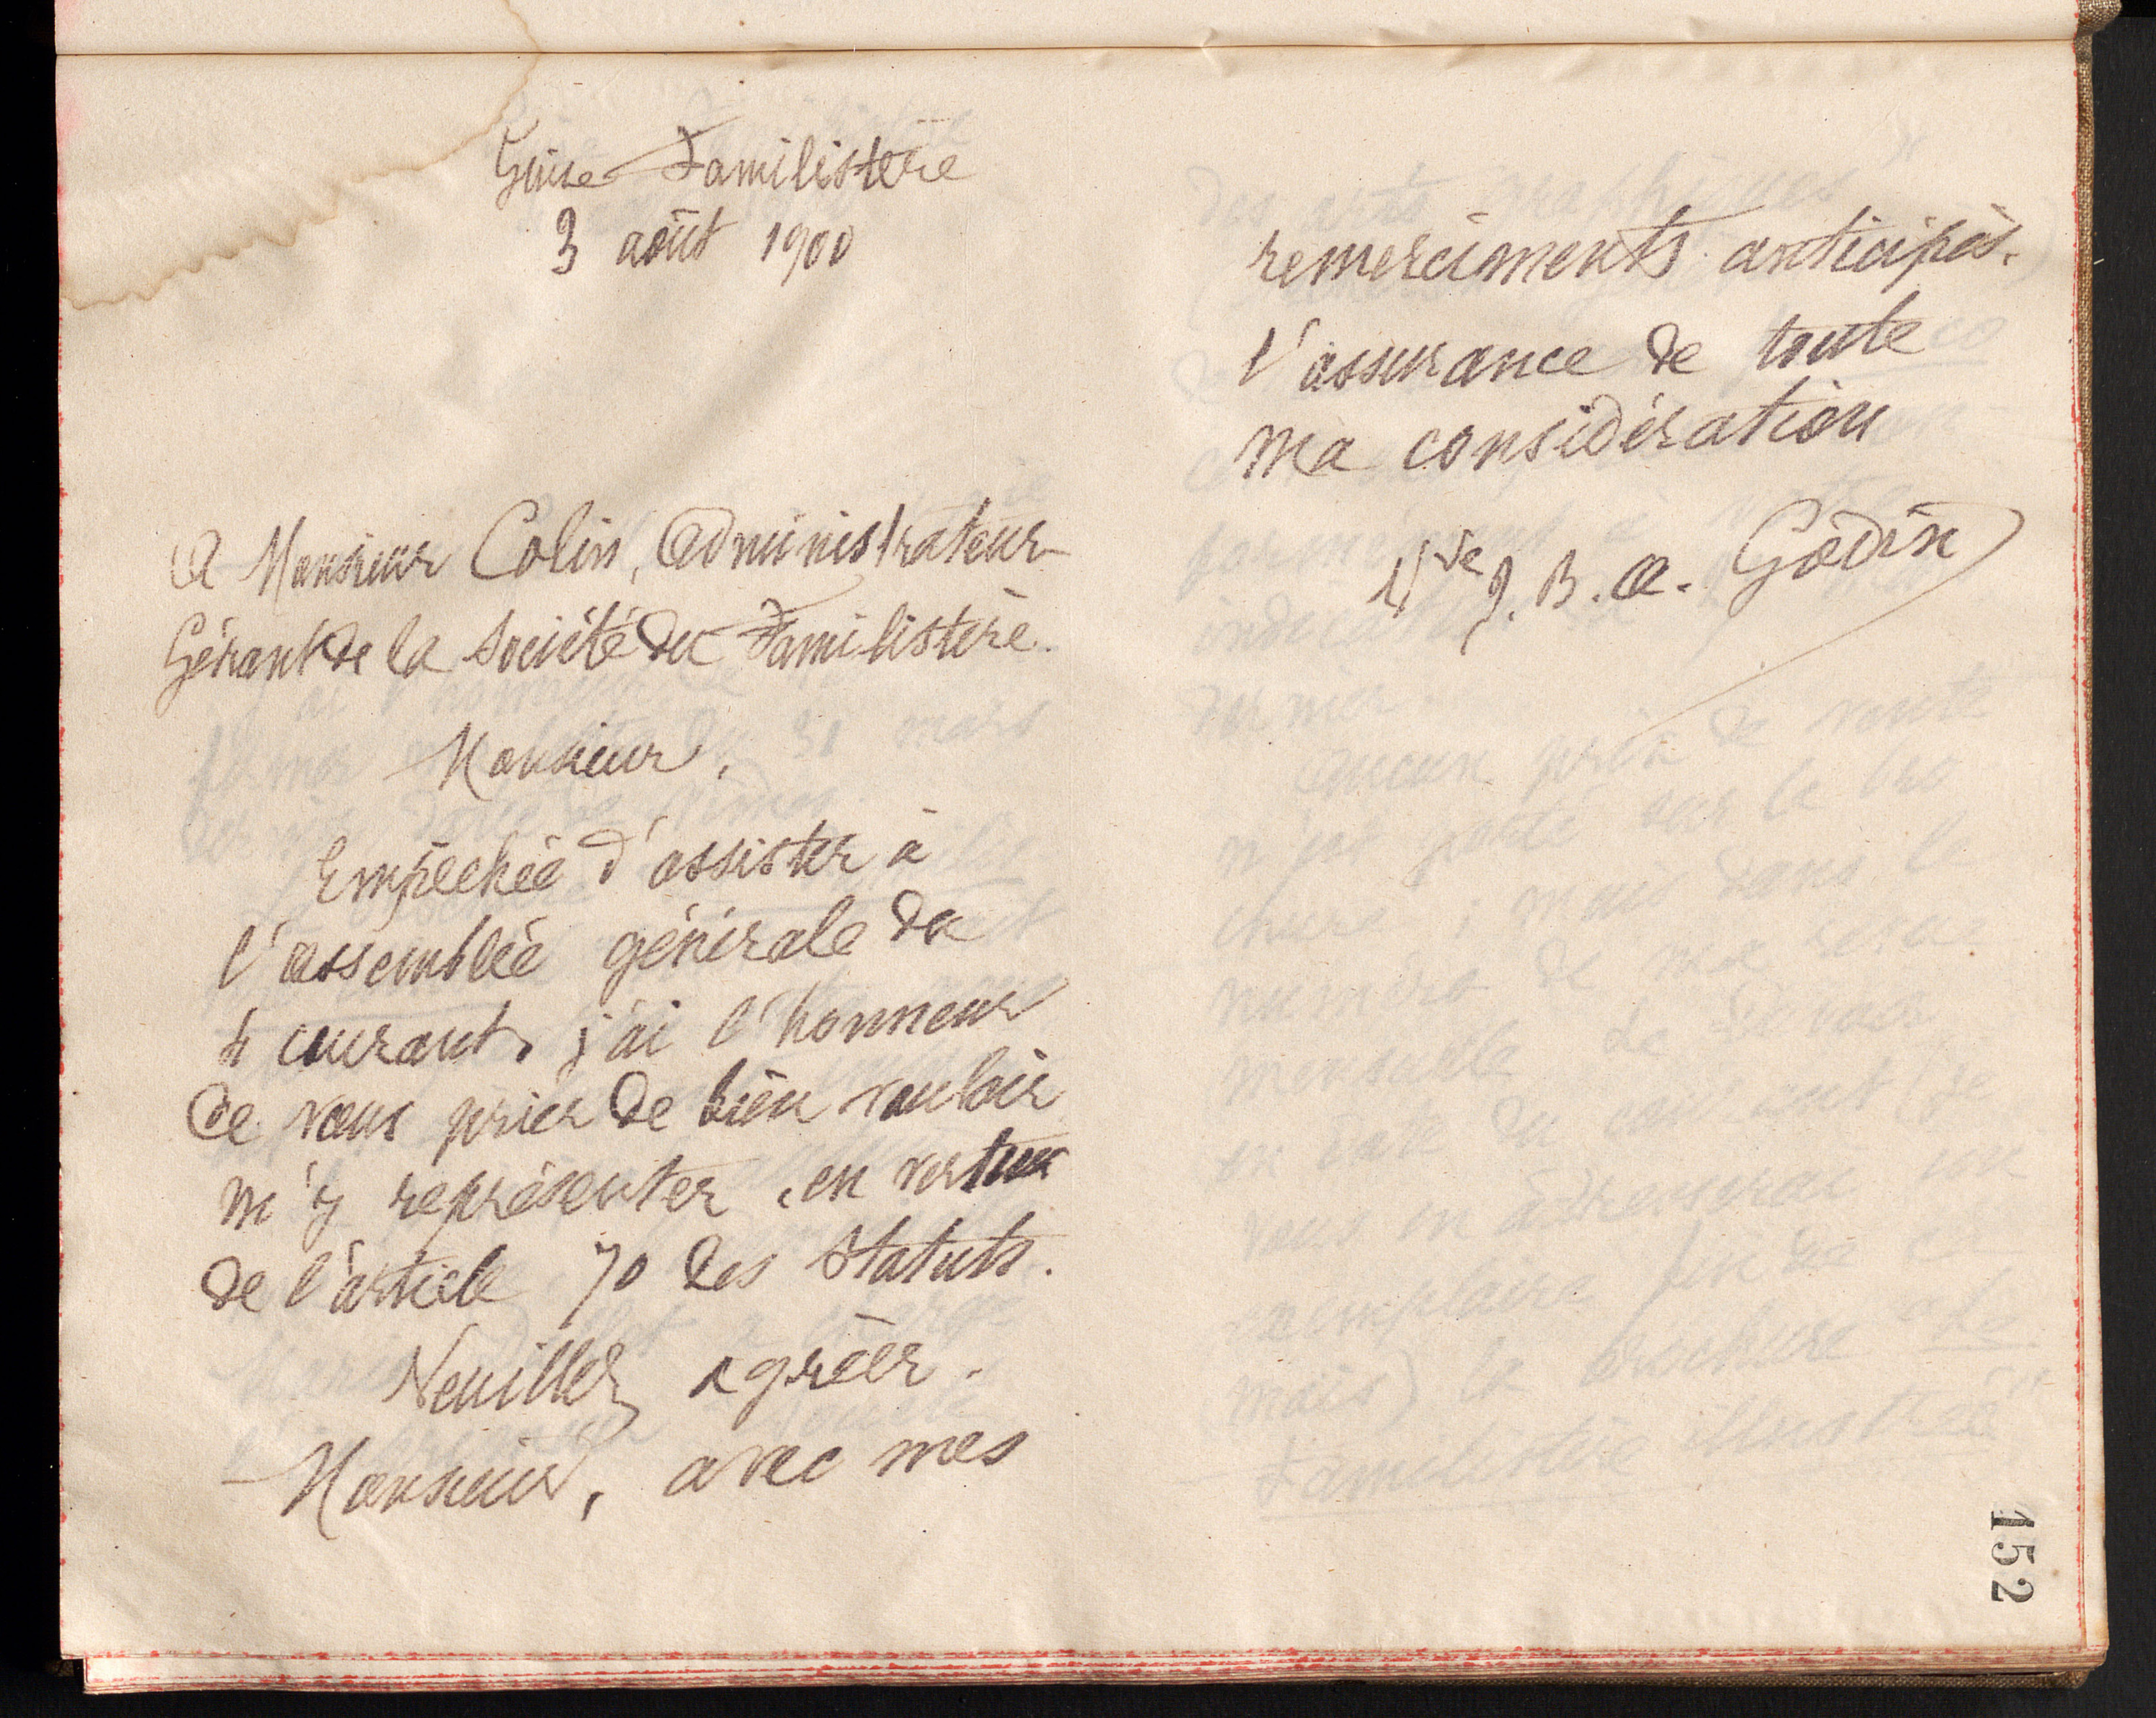 Guise Familistère
3 août 1900
A Monsieur Colin, Administrateur-
Gérant de la Société du Familistère.
Monsieur,
Empêchée d'assister à
l'assemblée générale du
4 courant, j'ai l'honneur
de vous prier de bien vouloir
m'y représenter, en vertu
de l'article 70 des Statuts.
Veuillez agréer,
Monsieur, avec mes
remerciments anticipés,
l'assurance de toute
ma considération
Vve J. B. A. Godin
152